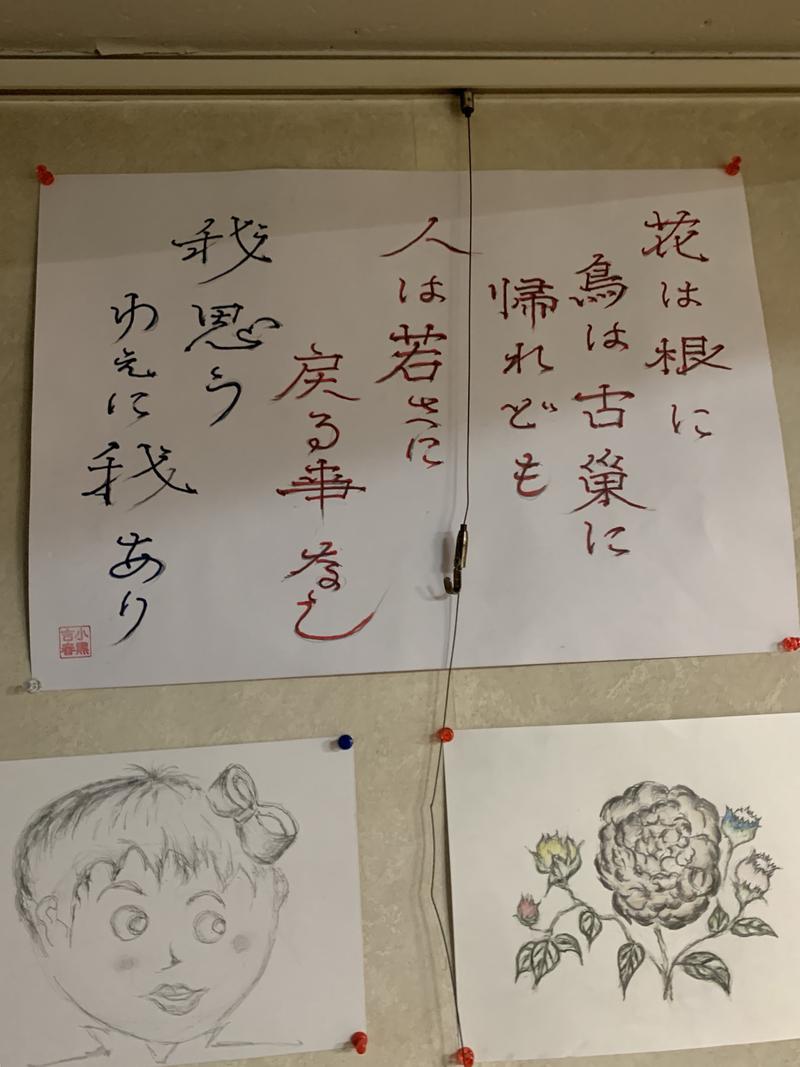 花は根に
鳥は古巣に
帰れども
人は若さに
戻る事なし
我思う
ゆえに我あり
小黒
吉春